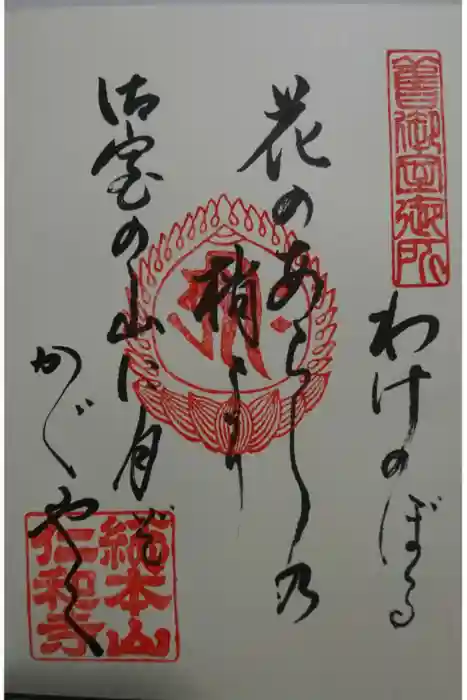 舊御室御所
わけのぼる
花のあらし乃
梢より
御室の山に月ぞ
かゞやく
總本山
仁和寺